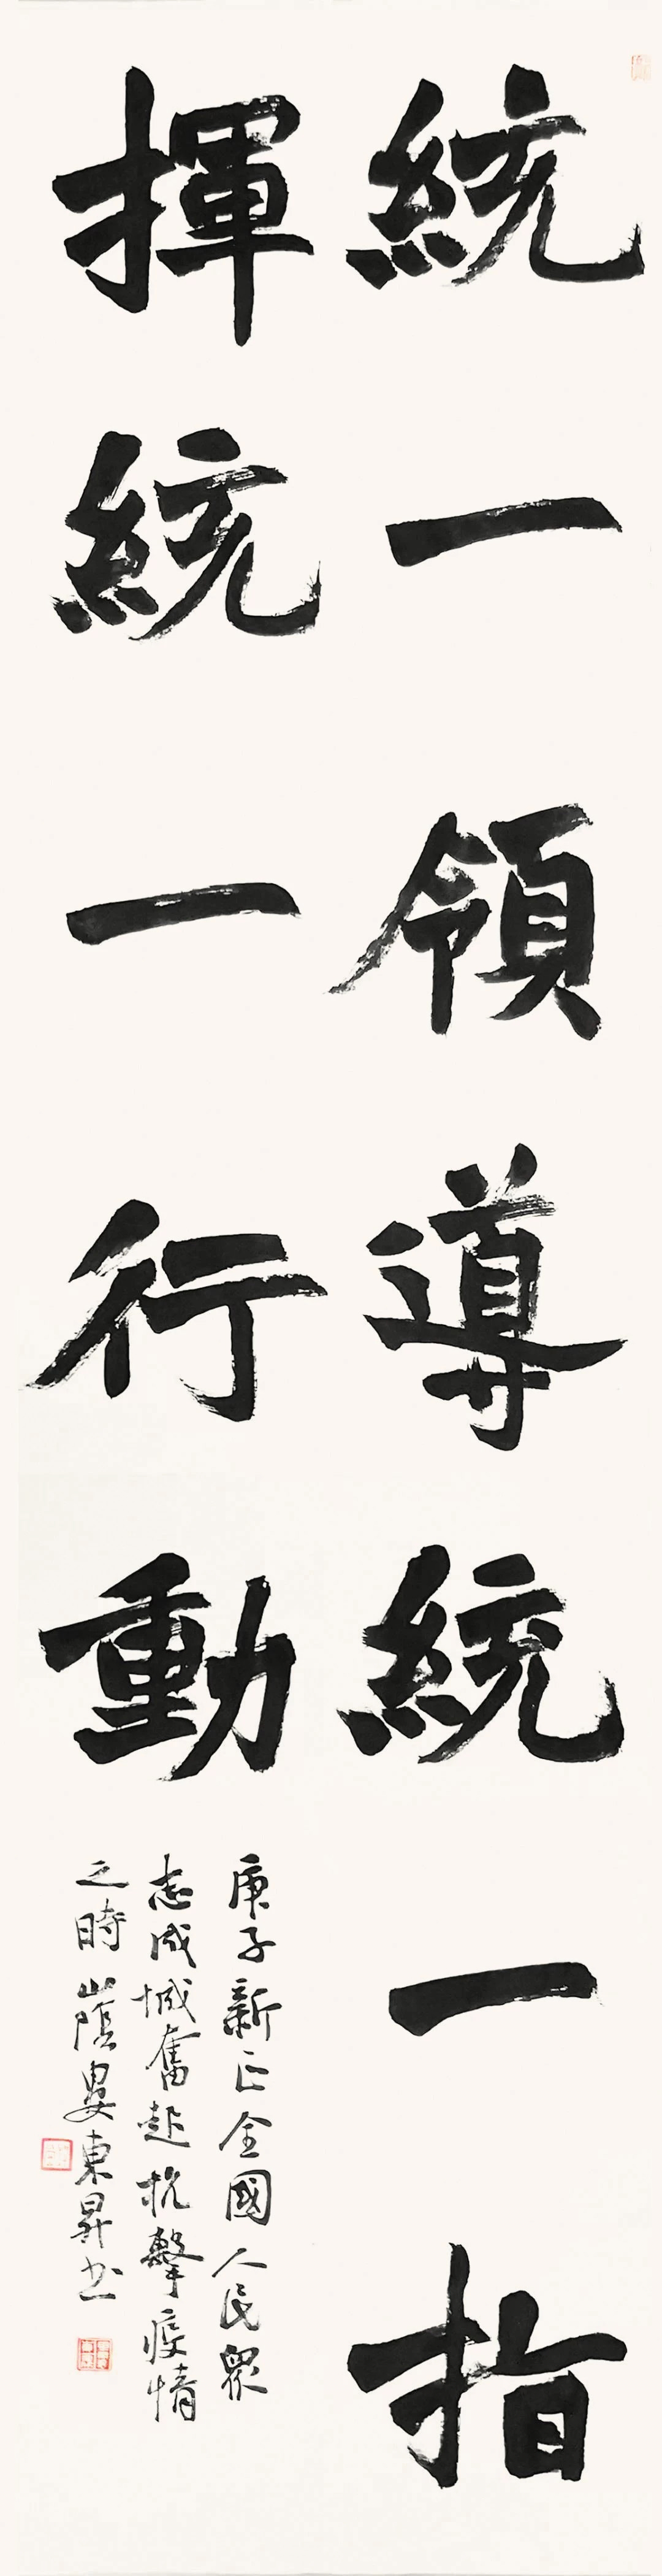 統一領導統一指
揮統一行動
庚子新正全國人民眾
志成城奮起抗擊疫情
之時山陰婁東昇书